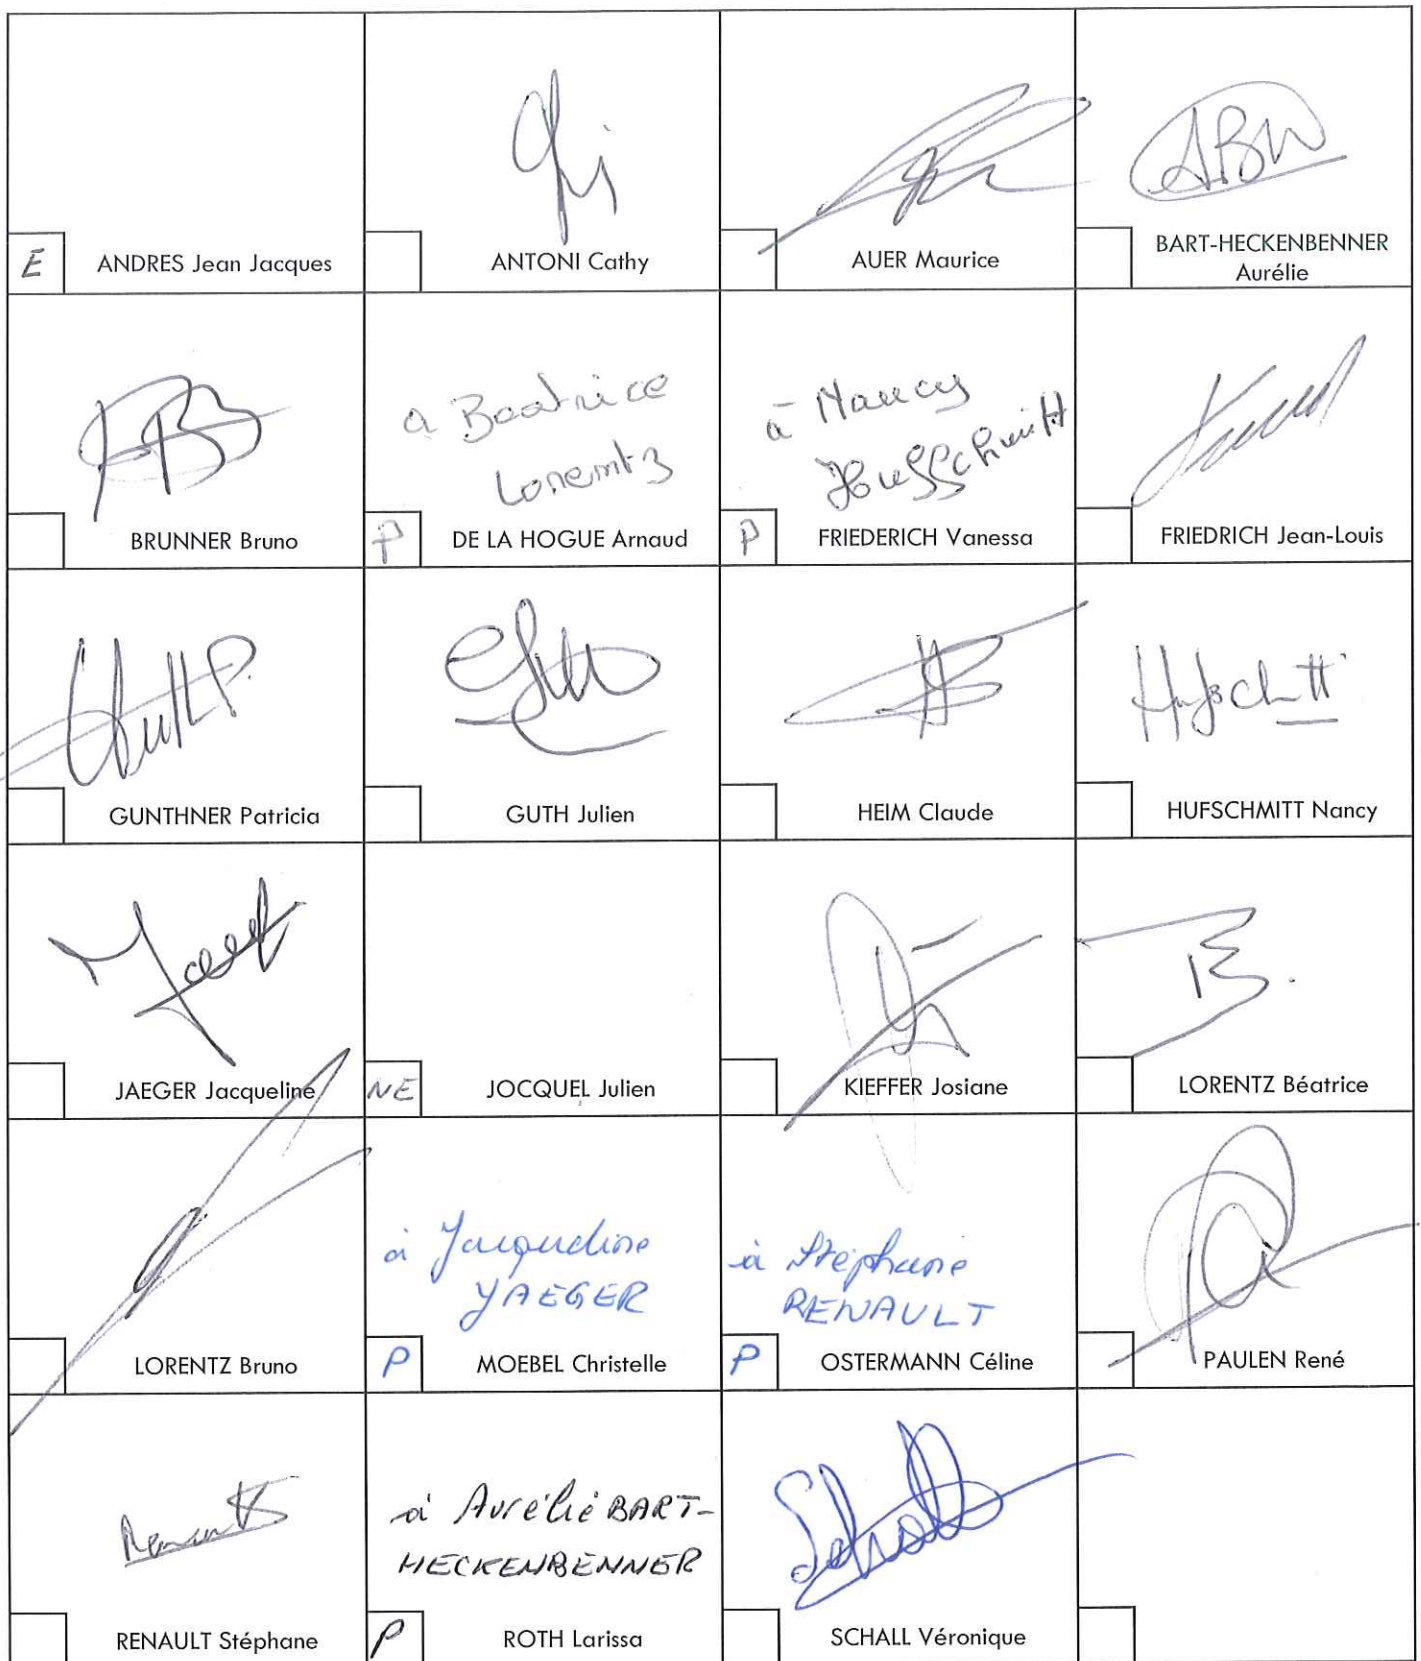 E ANDRES Jean Jacques
ANTONI Cathy
AUER Maurice
ABH
BART-HECKENBENNER
Aurélie
BRUNNER Bruno
a Beatrice
Lorentz
P DE LA HOGUE Arnaud
à Nancy
Huffschmitt
P FRIEDERICH Vanessa
FRIEDRICH Jean-Louis
GUNTHNER Patricia
GUTH Julien
HEIM Claude
Hufschmitt
HUFSCHMITT Nancy
JAEGER Jacqueline
NE JOCQUEL Julien
KIEFFER Josiane
LORENTZ Béatrice
LORENTZ Bruno
à Jacqueline
JAEGER
P MOEBEL Christelle
à Stéphane
RENAULT
P OSTERMANN Céline
PAULEN René
RENAULT Stéphane
à Aurélie BART-
HECKENBENNER
P ROTH Larissa
Schall
SCHALL Véronique